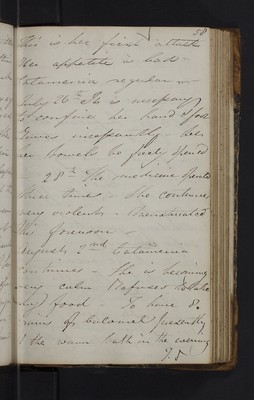 58
This is her first attack
Her appetite is bad -
Catamenia regular -
July 26th It is necessary
to confine her hand & foot
incessantly her
her bowels be freely opened
28th The medicine operated
three times - She continues
very violent - Menstruated
this forenoon -
August 2nd Catamenia
continues - She is becoming
very calm Refuses to take
any food - To have 80
grains of Calomel presently
& the warm bath in the evening